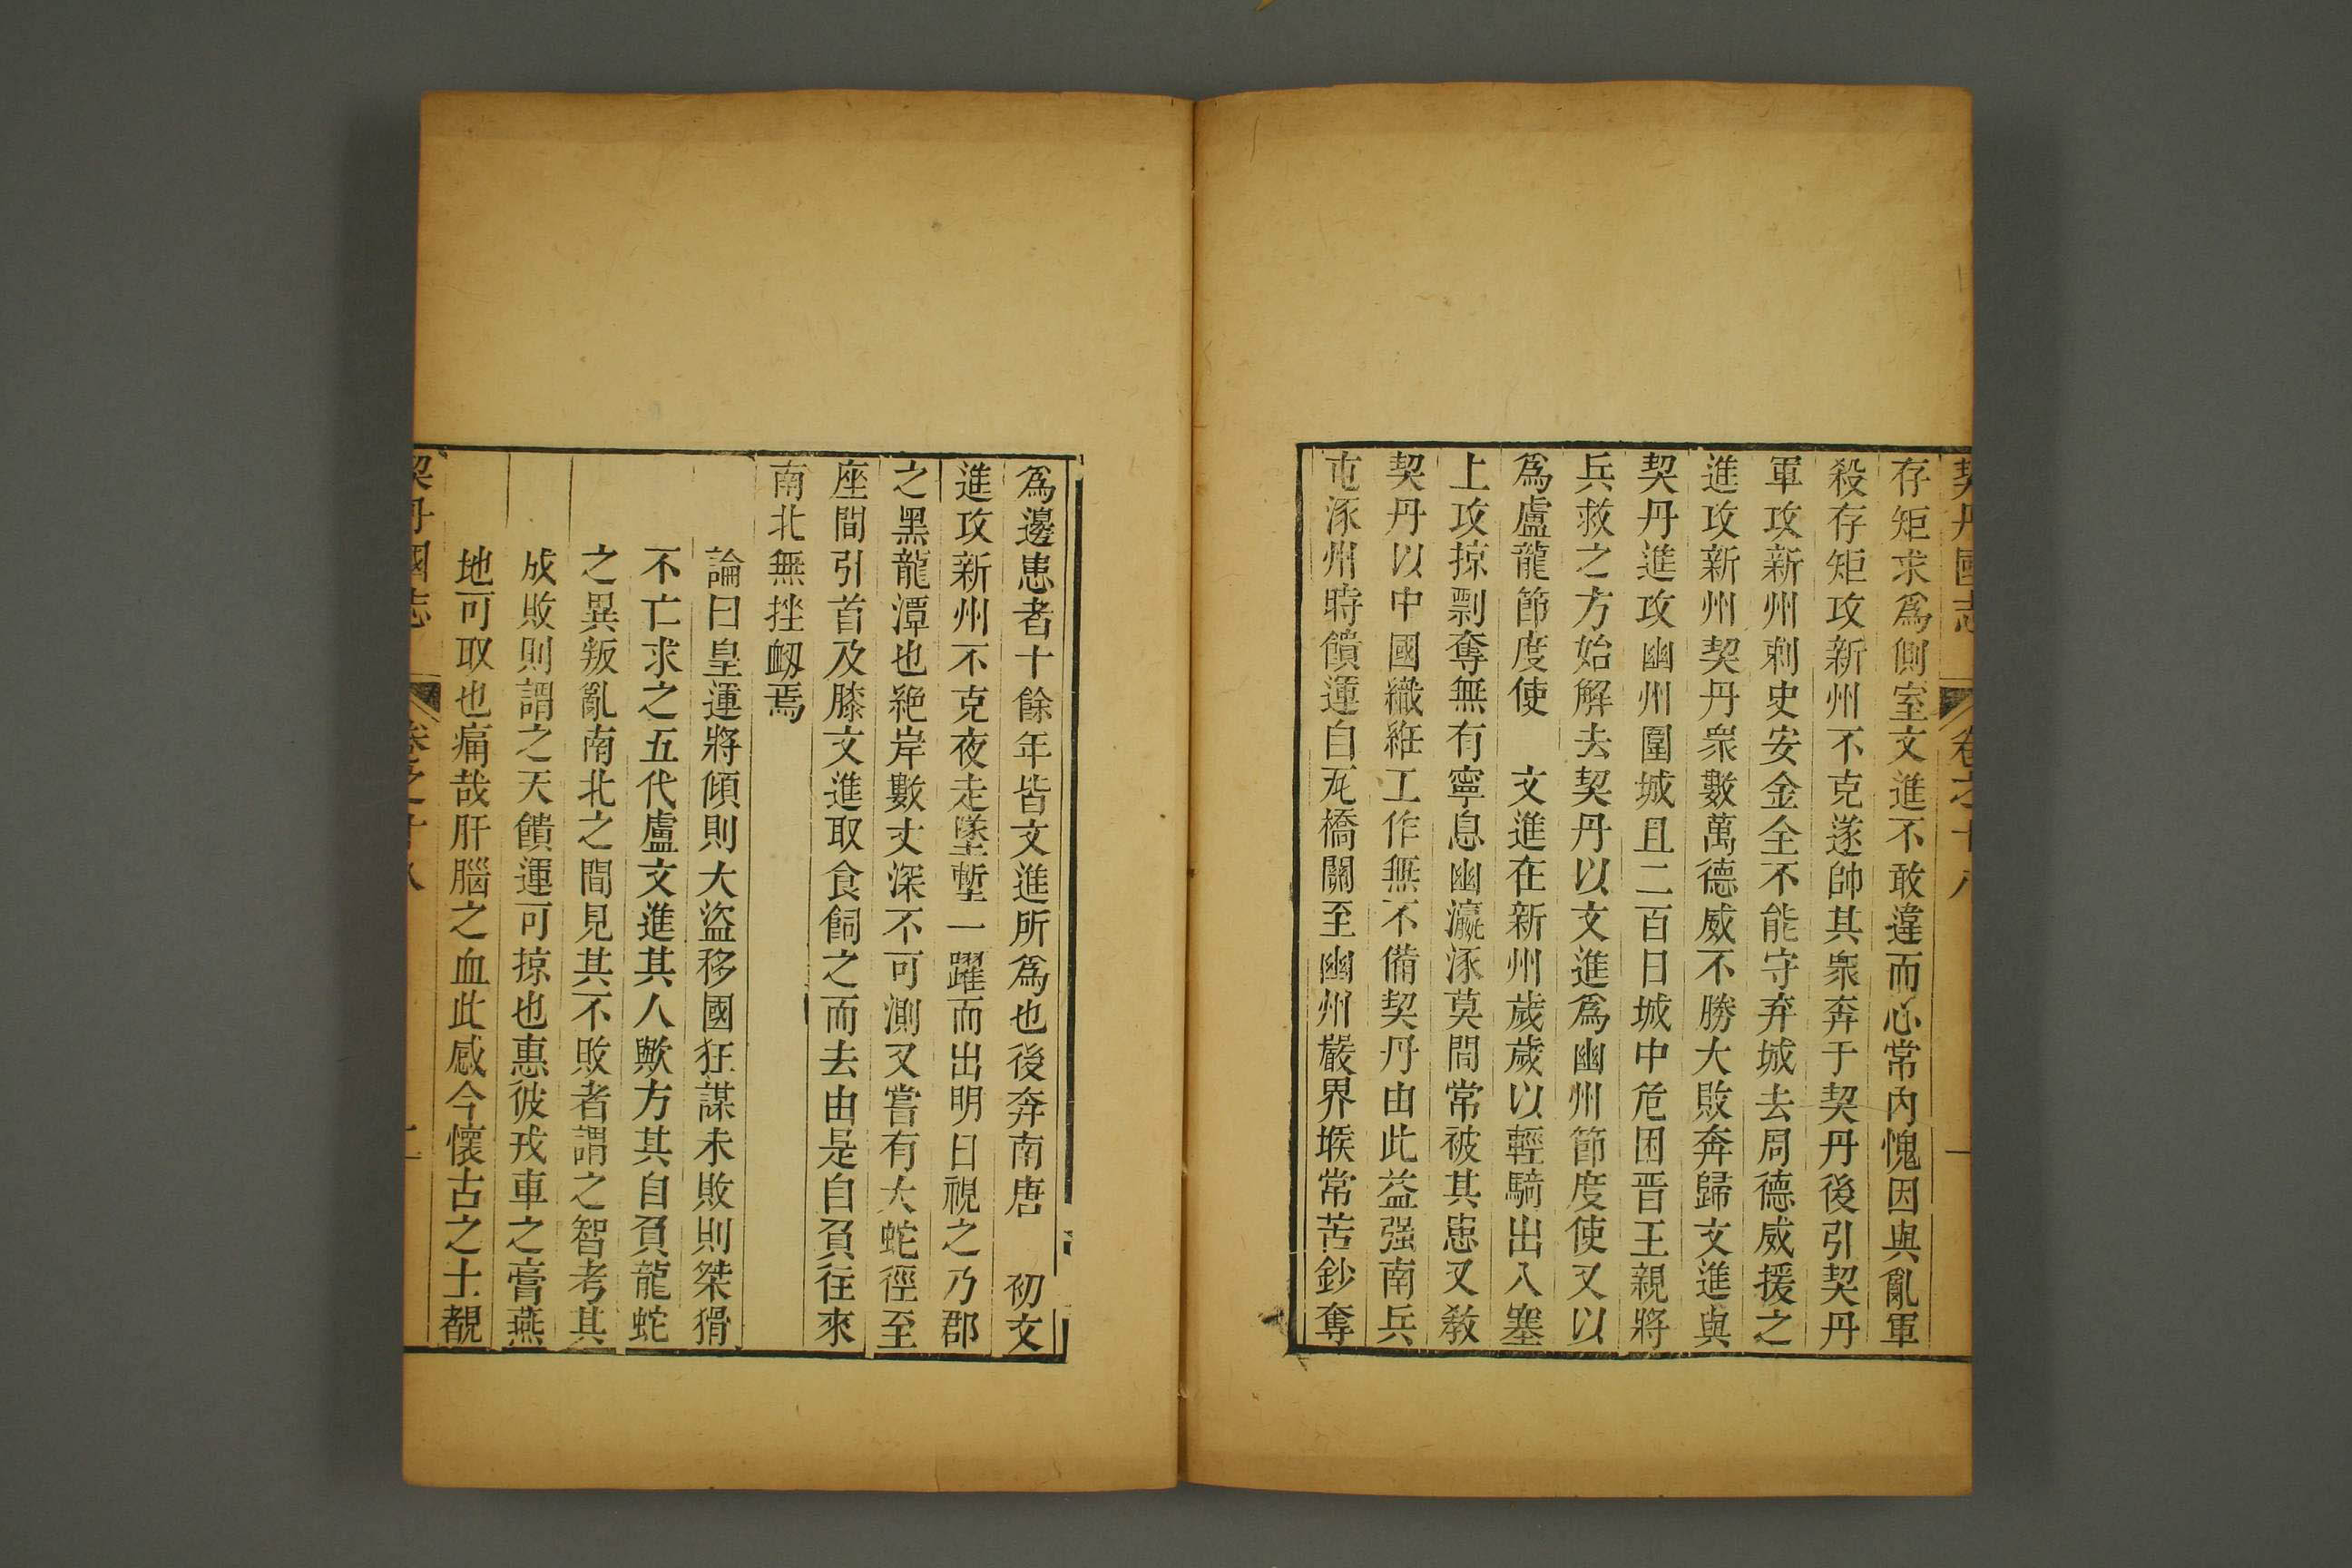 契丹國志 卷之十八 一
存矩求爲側室文進不敢違而心常內愧因與亂軍
殺存矩攻新州不克遂帥其衆奔于契丹後引契丹
軍攻新州刺史安金全不能守弃城去周德威援之
進攻新州契丹衆數萬德威不勝大敗奔歸文進與
契丹進攻幽州圍城且二百日城中危困晉王親將
兵救之方始解去契丹以文進爲幽州節度使又以
爲盧龍節度使　文進在新州歲歲以輕騎出入塞
上攻掠剽奪無有寧息幽瀛涿莫間常被其患又教
契丹以中國織絍工作無不備契丹由此益强南兵
屯涿州時饋運自瓦橋關至幽州嚴界堠常苦鈔奪
爲邊患者十餘年皆文進所爲也後奔南唐　初文
進攻新州不克夜走墜塹一躍而出明日視之乃郡
之黑龍潭也絶岸數丈深不可測又嘗有大蛇徑至
座間引首及膝文進取食飼之而去由是自負往來
南北無挫衂焉
論曰皇運將傾則大盜移國狂謀未敗則桀猾
不亡求之五代盧文進其人歟方其自負龍蛇
之異叛亂南北之間見其不敗者謂之智考其
成敗則謂之天饋運可掠也惠彼戎車之膏燕
地可取也痛哉肝腦之血此感今懷古之士覩
契丹國志 卷之十八